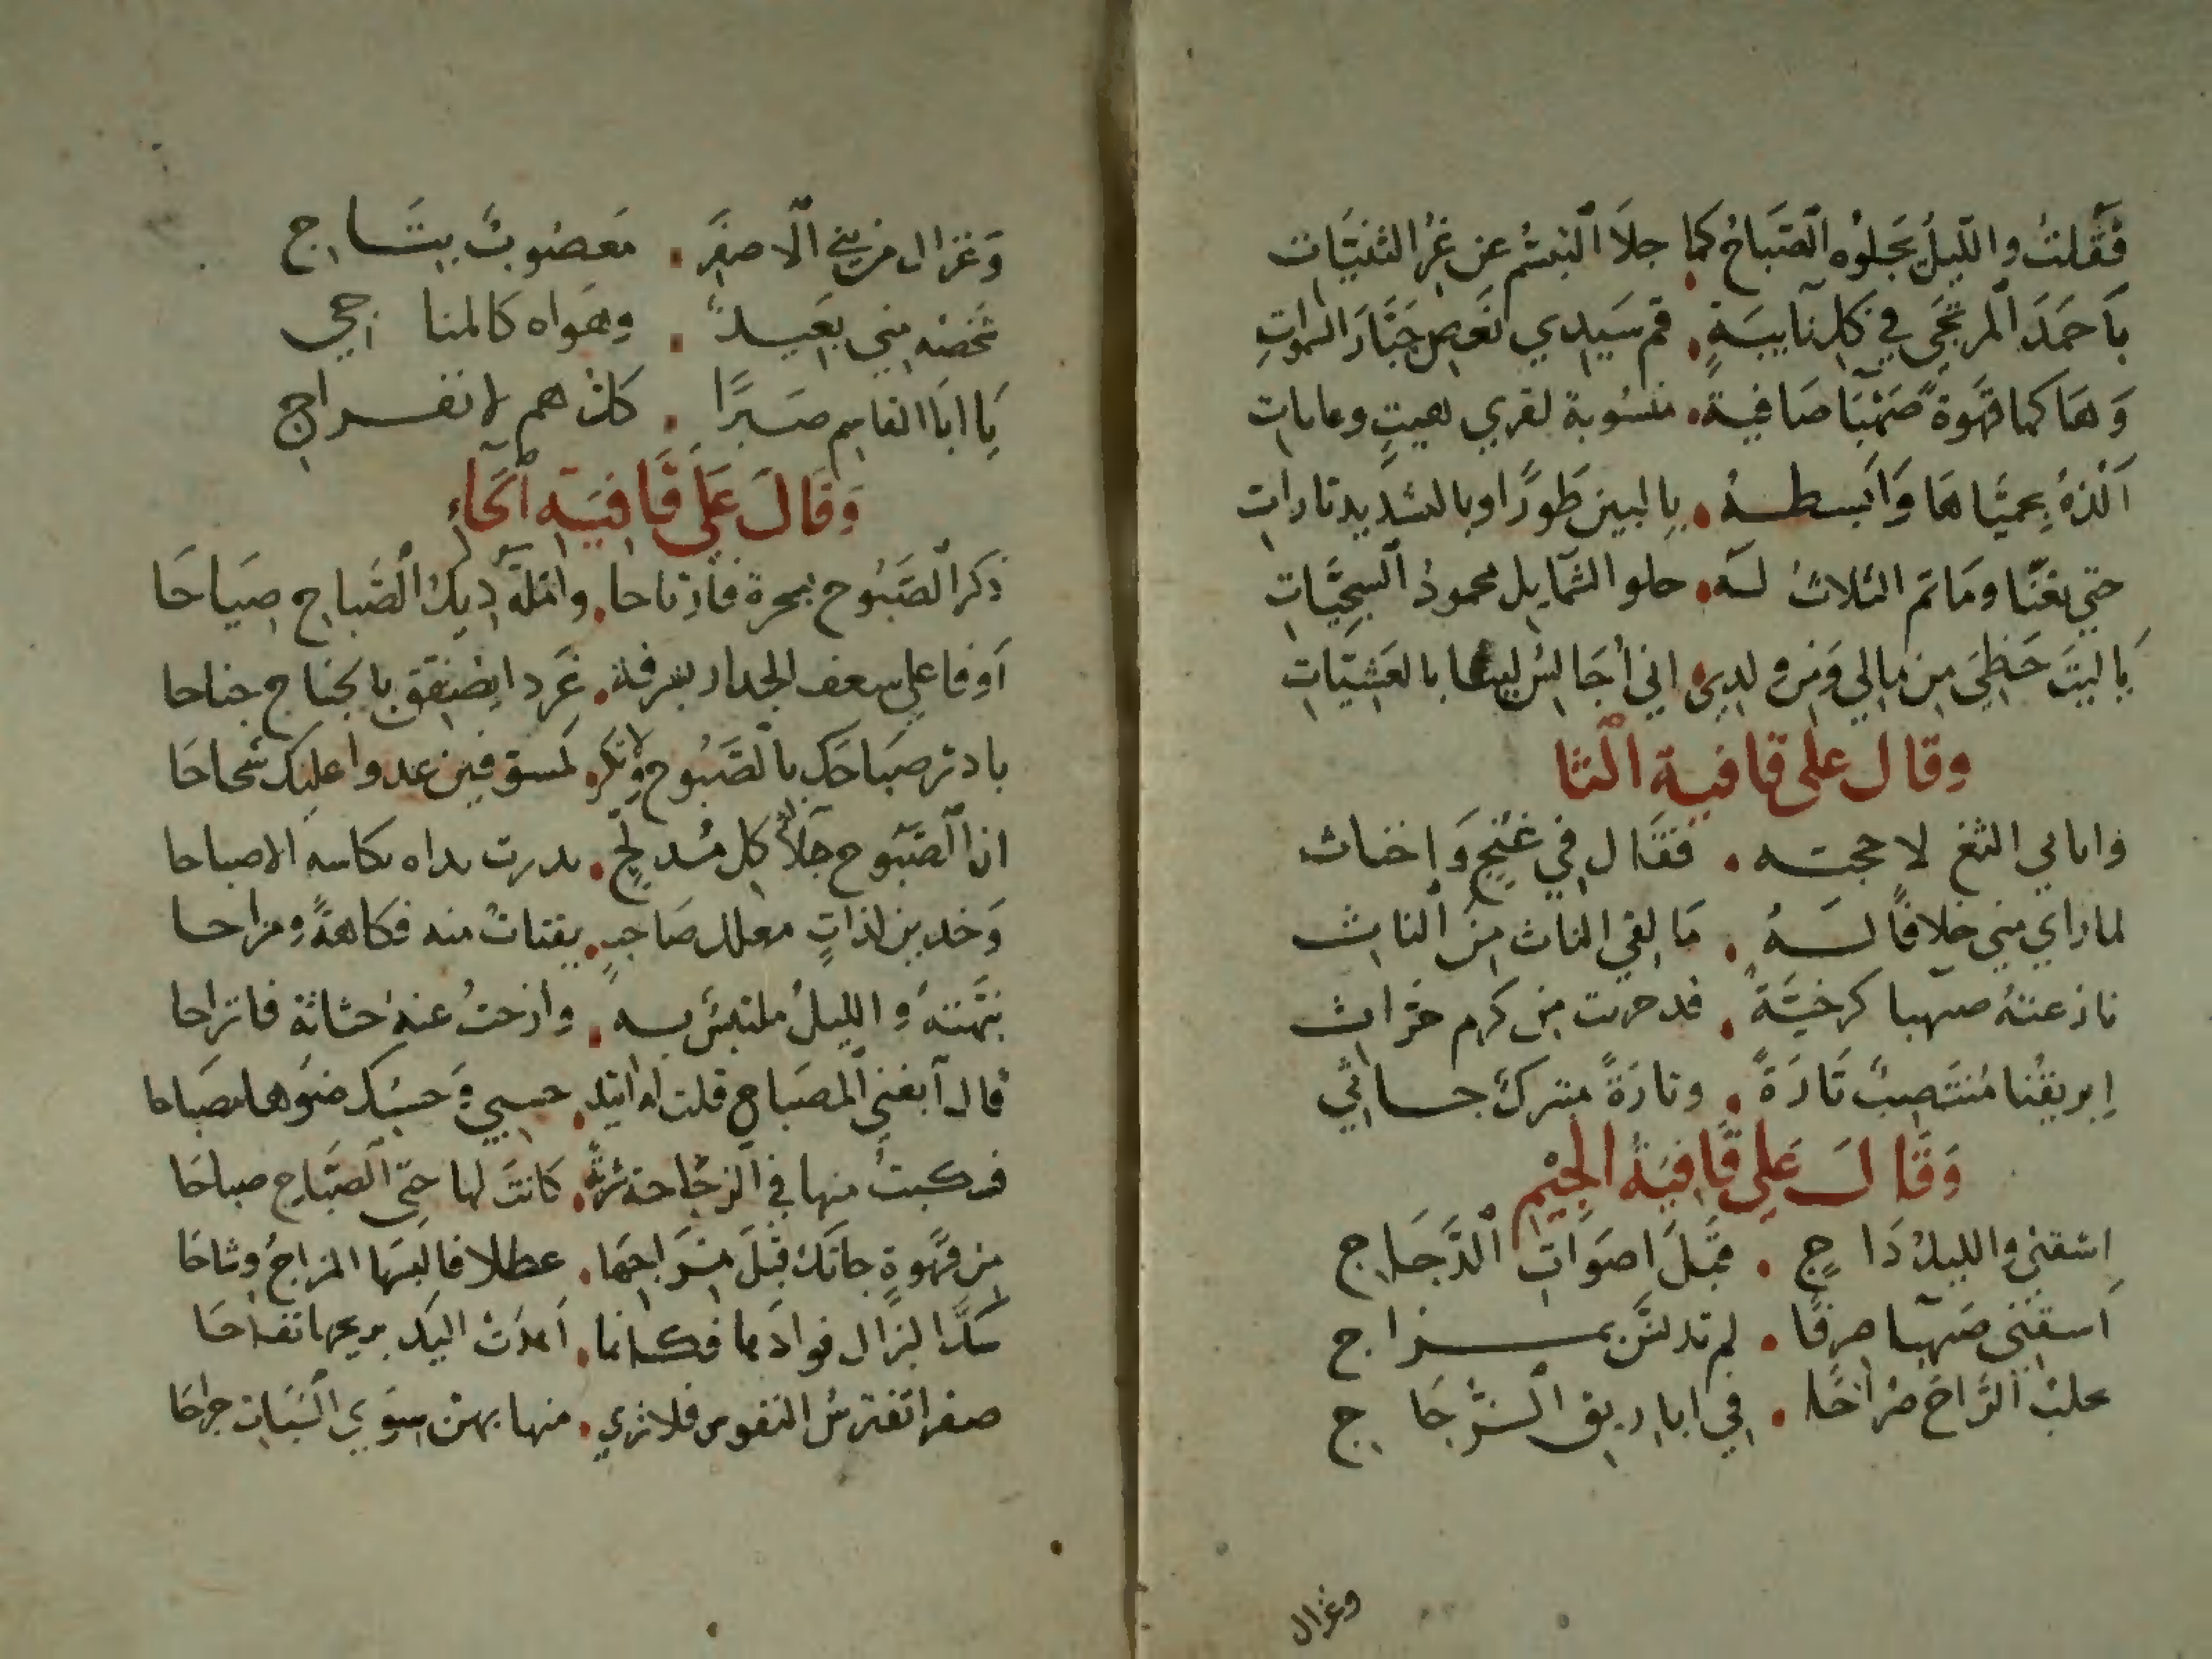 فَقُلتُ والليلُ يَجلوُه الصَّبَاحُ كما جلاَ التبسُّم عن غُرّ الثنيَّات
يَا حمَدَ المرتجَى في كل نآيبَةٍ قم سَيدي نَعصِ جَبَّارَ السموات
وَهَاكها قهوَةً صَهْبَا صَافيةً منسُوبة لقري هيتٍ وعانات
اَلذهُ بِحميَّاهَا وَاَبسطهُ بِاللين طَورًا وبالتشديد تارات
حتي تغَنَّا ومَا تم الثلاثُ لهُ حلو الشمَايل محمود السجيَّات
يَا ليتَ حَظِّي مِن مالي وَمن ولدي اني اُجَالسُ لبنا بالعَشيَّات
وقال على قافية الثا
وابابي الثغ لاحجته فقَال في غُنْجٍ وَ اِخناث
لما راي مني خلافًا لهُ مَا لقي الناث مِنَ الناث
نازعتهُ صهبا كرخيَّةً قد حرثت مِن كرم حَرَّاث
اِبريقُنا مُنتَصِبٌ تَارَةً وتارَةً مبتركٌ جاثي
وَقَالَ عَلي قَافيَةُ الجِيْم
اِسْقني والليلُ دَاجٍ قبلَ اصوَاتِ الدَّجَاج
اَسقني صَهبا صِرفًا لم تدلسَّن بمزاج
حلبُ الرَّاح صُرَاحًا في اباريق الزُّجَاج
وغزال
وَغزال من بني الاصفَر مَعصُوبٌ بِتَاج
شخصُه مني بعَيدٌ وهَواه كالمناجي
يَا ابَا القاسِم صَبرًا كلُّ هم لانفراج
وَقَالَ عَلَى قَافِيَة الحَاءِ
ذكر الصَّبُوح بسحرةٍ فارتاحا وامَلَّهُ دِيكُ الصَّباح صِيَاحَا
اَوفا علي سعف الجدار بشرفة غَرِدا يصَفق بالجناح جناحا
بادر صَبَاحَك بالصَّبُوح ولا تكن كمسوفين غدوا عليك شحاحا
ان الصَّبُوح جلآ كل مُدلجٍ بدرت يداه بكاسه الاصباحا
وَخدين لذاتٍ معلل صَاحبٍ يقتات منه فكاهةً ومزاحا
نَبَّهتهُ وَالليلُ ملتبسٌ به وازحتُ عنه حثاثة فانزاحا
قال اَبغني المصباح قلت له اتئد حسبي وَحسبُك ضوُها مصباحا
فسكبتُ منها في الزجُاجة شربةً كانت لها حتى الصَّبَاح صباحَا
مِن قَهوةٍ جاتك قبْلَ مِزَاجهَا عطلا فالبسَها المزاجُ وِشاحَا
شكَّ البزال فوادَها فكانما اَهدَت اليك بريحها تفاحَا
صفرا تفترسُ النفوس فلا تري منها بهن سِوَي السُّبَات جراحَا